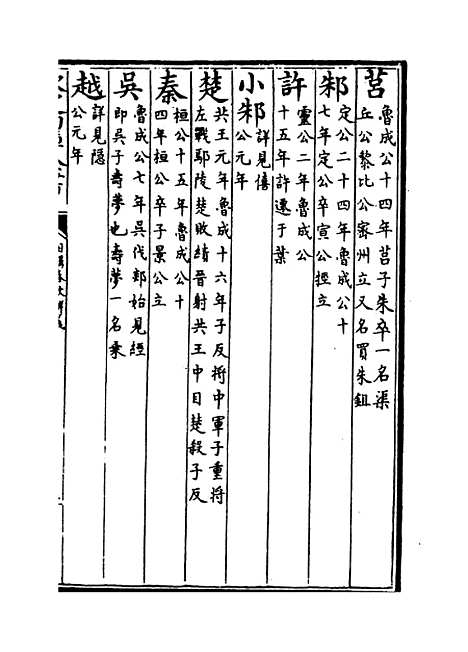 莒
魯成公十四年莒子朱卒一名渠
丘公黎比公宻州立又名買朱鉏
邾
定公二十四年魯成公十
七年定公卒宣公牼立
許
靈公二年魯成公
十五年許遷于葉
小邾
詳見僖
公元年
楚
共王元年魯成十六年子反將中軍子重將
左戰鄢陵楚敗績晉射共王中目楚殺子反
秦
桓公十五年魯成公十
四年桓公卒子景公立
吳
魯成公七年吳伐郯始見經
即吳子壽夢也壽夢一名乗
越
詳見隱
公元年